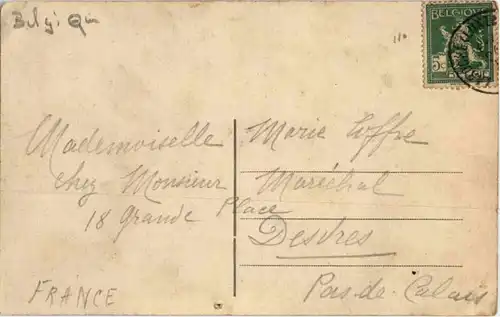 Belgiqu
BELGIQUE
5c
Mademoiselle Marie Joffre
chez Monsieur Maréchal
18 Grande Place
Desvres
Pas-de-Calais
FRANCE